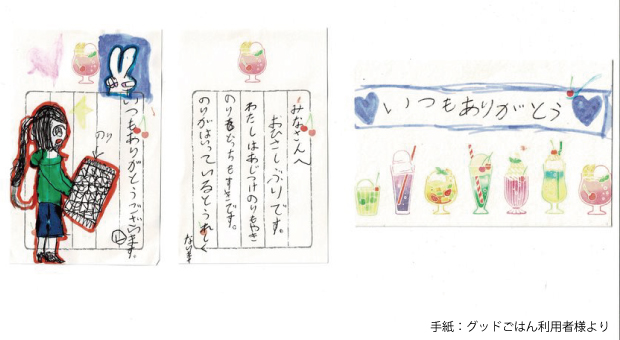 のり
いつもありがとうございます。
みなさんへ
おひさしぶりです。
わたしはあじつけのりもやき
のりもどっちもすきです。
のりがはいっているとうれしく
なります
いつもありがとう
手紙：グッドごはん利用者様より